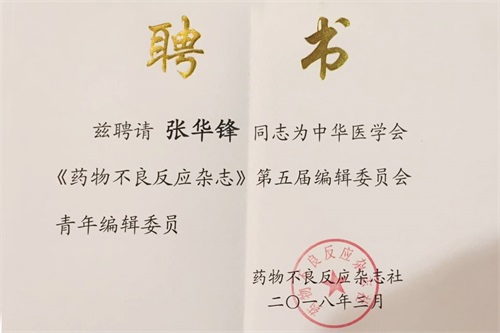 聘书
兹聘请 张华锋 同志为中华医学会
《药物不良反应杂志》第五届编辑委员会
青年编辑委员
药物不良反应杂志社
二〇一八年三月
药物不良反应杂志社